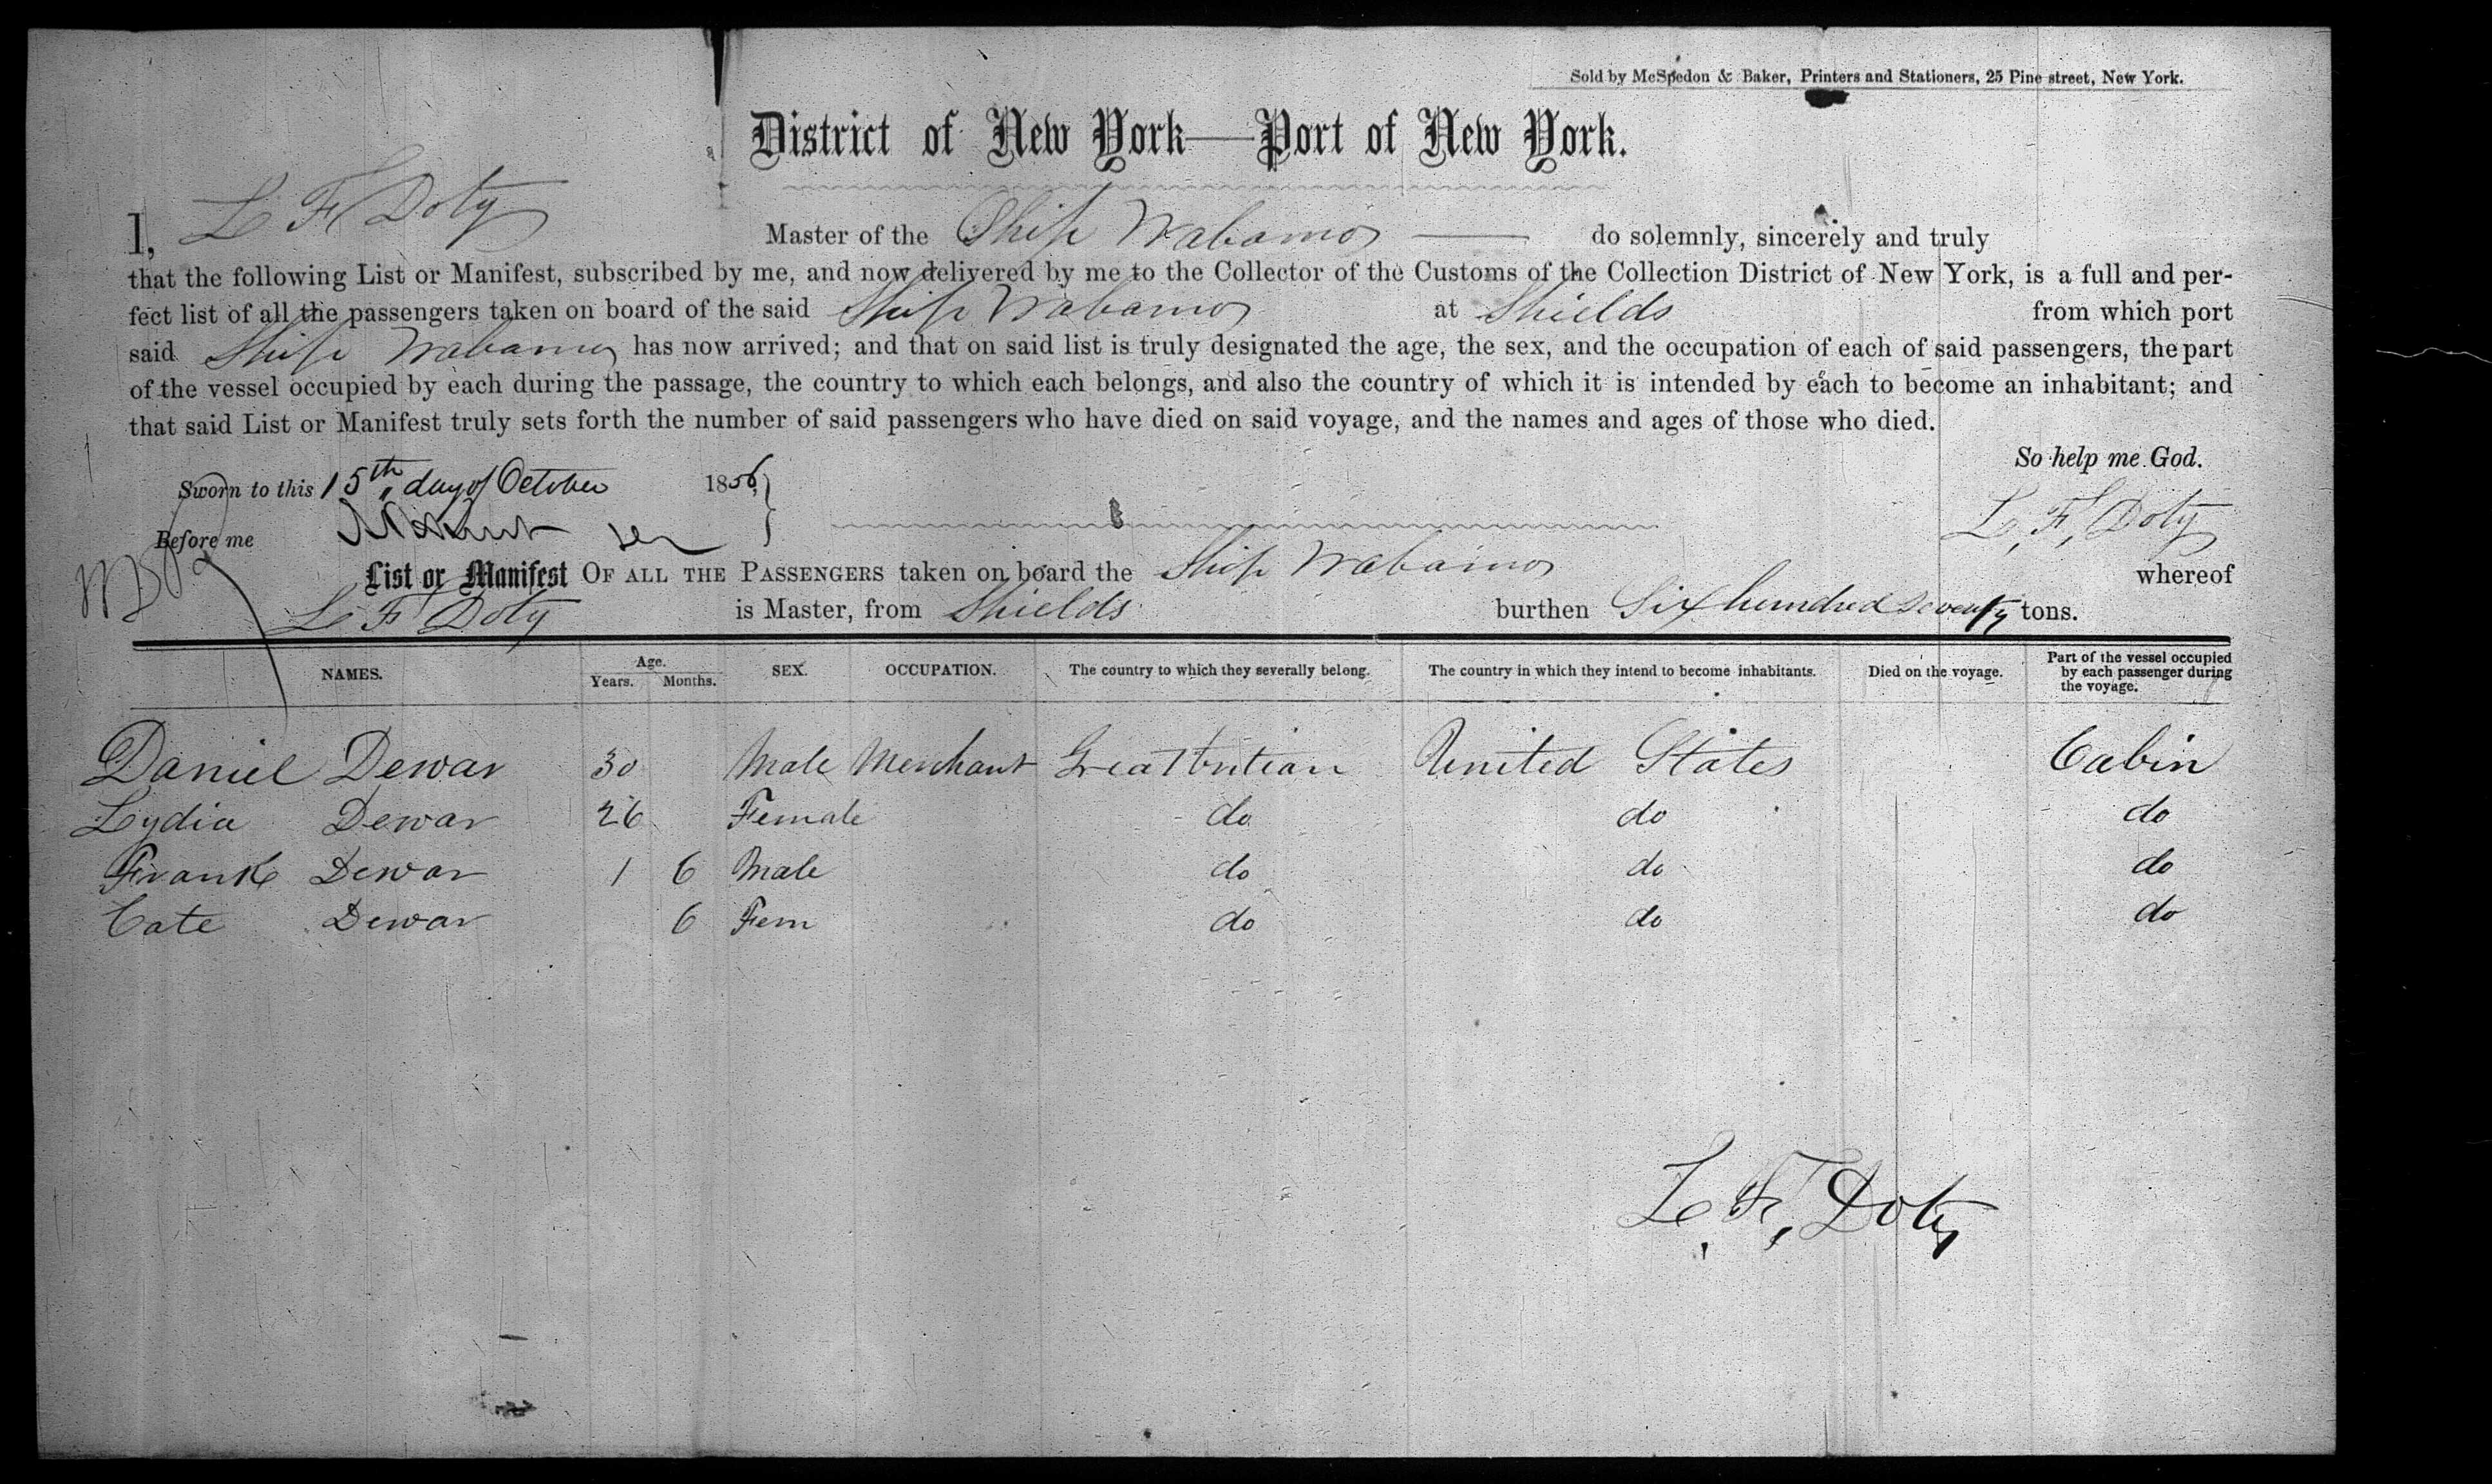 Sold by McSpedon & Baker, Printers and Stationers, 25 Pine street, New York.
District of New York—Port of New York.
I, L F Doty Master of the Ship Wabamo do solemnly, sincerely and truly
that the following List or Manifest, subscribed by me, and now delivered by me to the Collector of the Customs of the Collection District of New York, is a full and per-
fect list of all the passengers taken on board of the said Ship Wabamo at Shields from which port
said Ship Wabamo has now arrived; and that on said list is truly designated the age, the sex, and the occupation of each of said passengers, the part
of the vessel occupied by each during the passage, the country to which each belongs, and also the country of which it is intended by each to become an inhabitant; and
that said List or Manifest truly sets forth the number of said passengers who have died on said voyage, and the names and ages of those who died.
So help me God.
Sworn to this 15th day of October 1856
L. F. Doty
Before me
List or Manifest OF ALL THE PASSENGERS taken on board the Ship Wabamo whereof
L F Doty is Master, from Shields burthen Six hundred seventy tons.
NAMES. Age. Years. Months. SEX. OCCUPATION. The country to which they severally belong. The country in which they intend to become inhabitants. Died on the voyage. Part of the vessel occupied by each passenger during the voyage.
Daniel Dewar 30 Male Merchant Great Britian United States Cabin
Lydia Dewar 26 Female do do do
Frank Dewar 1 6 Male do do do
Cate Dewar 6 Fem do do do
L. F. Doty